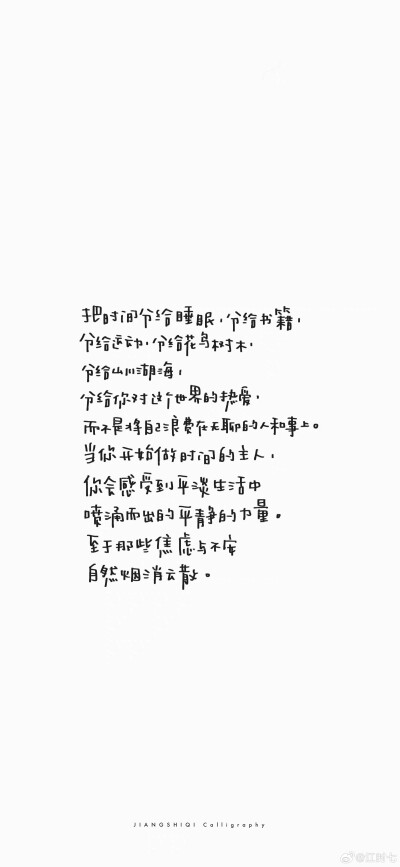 把时间分给睡眠，分给书籍，
分给运动，分给花鸟树木，
分给山川湖海，
分给你对这个世界的热爱，
而不是将自己浪费在无聊的人和事上。
当你开始做时间的主人，
你会感受到平淡生活中
喷涌而出的平静的力量。
至于那些焦虑与不安
自然烟消云散。
JIANGSHIQI Calligraphy
@江时七